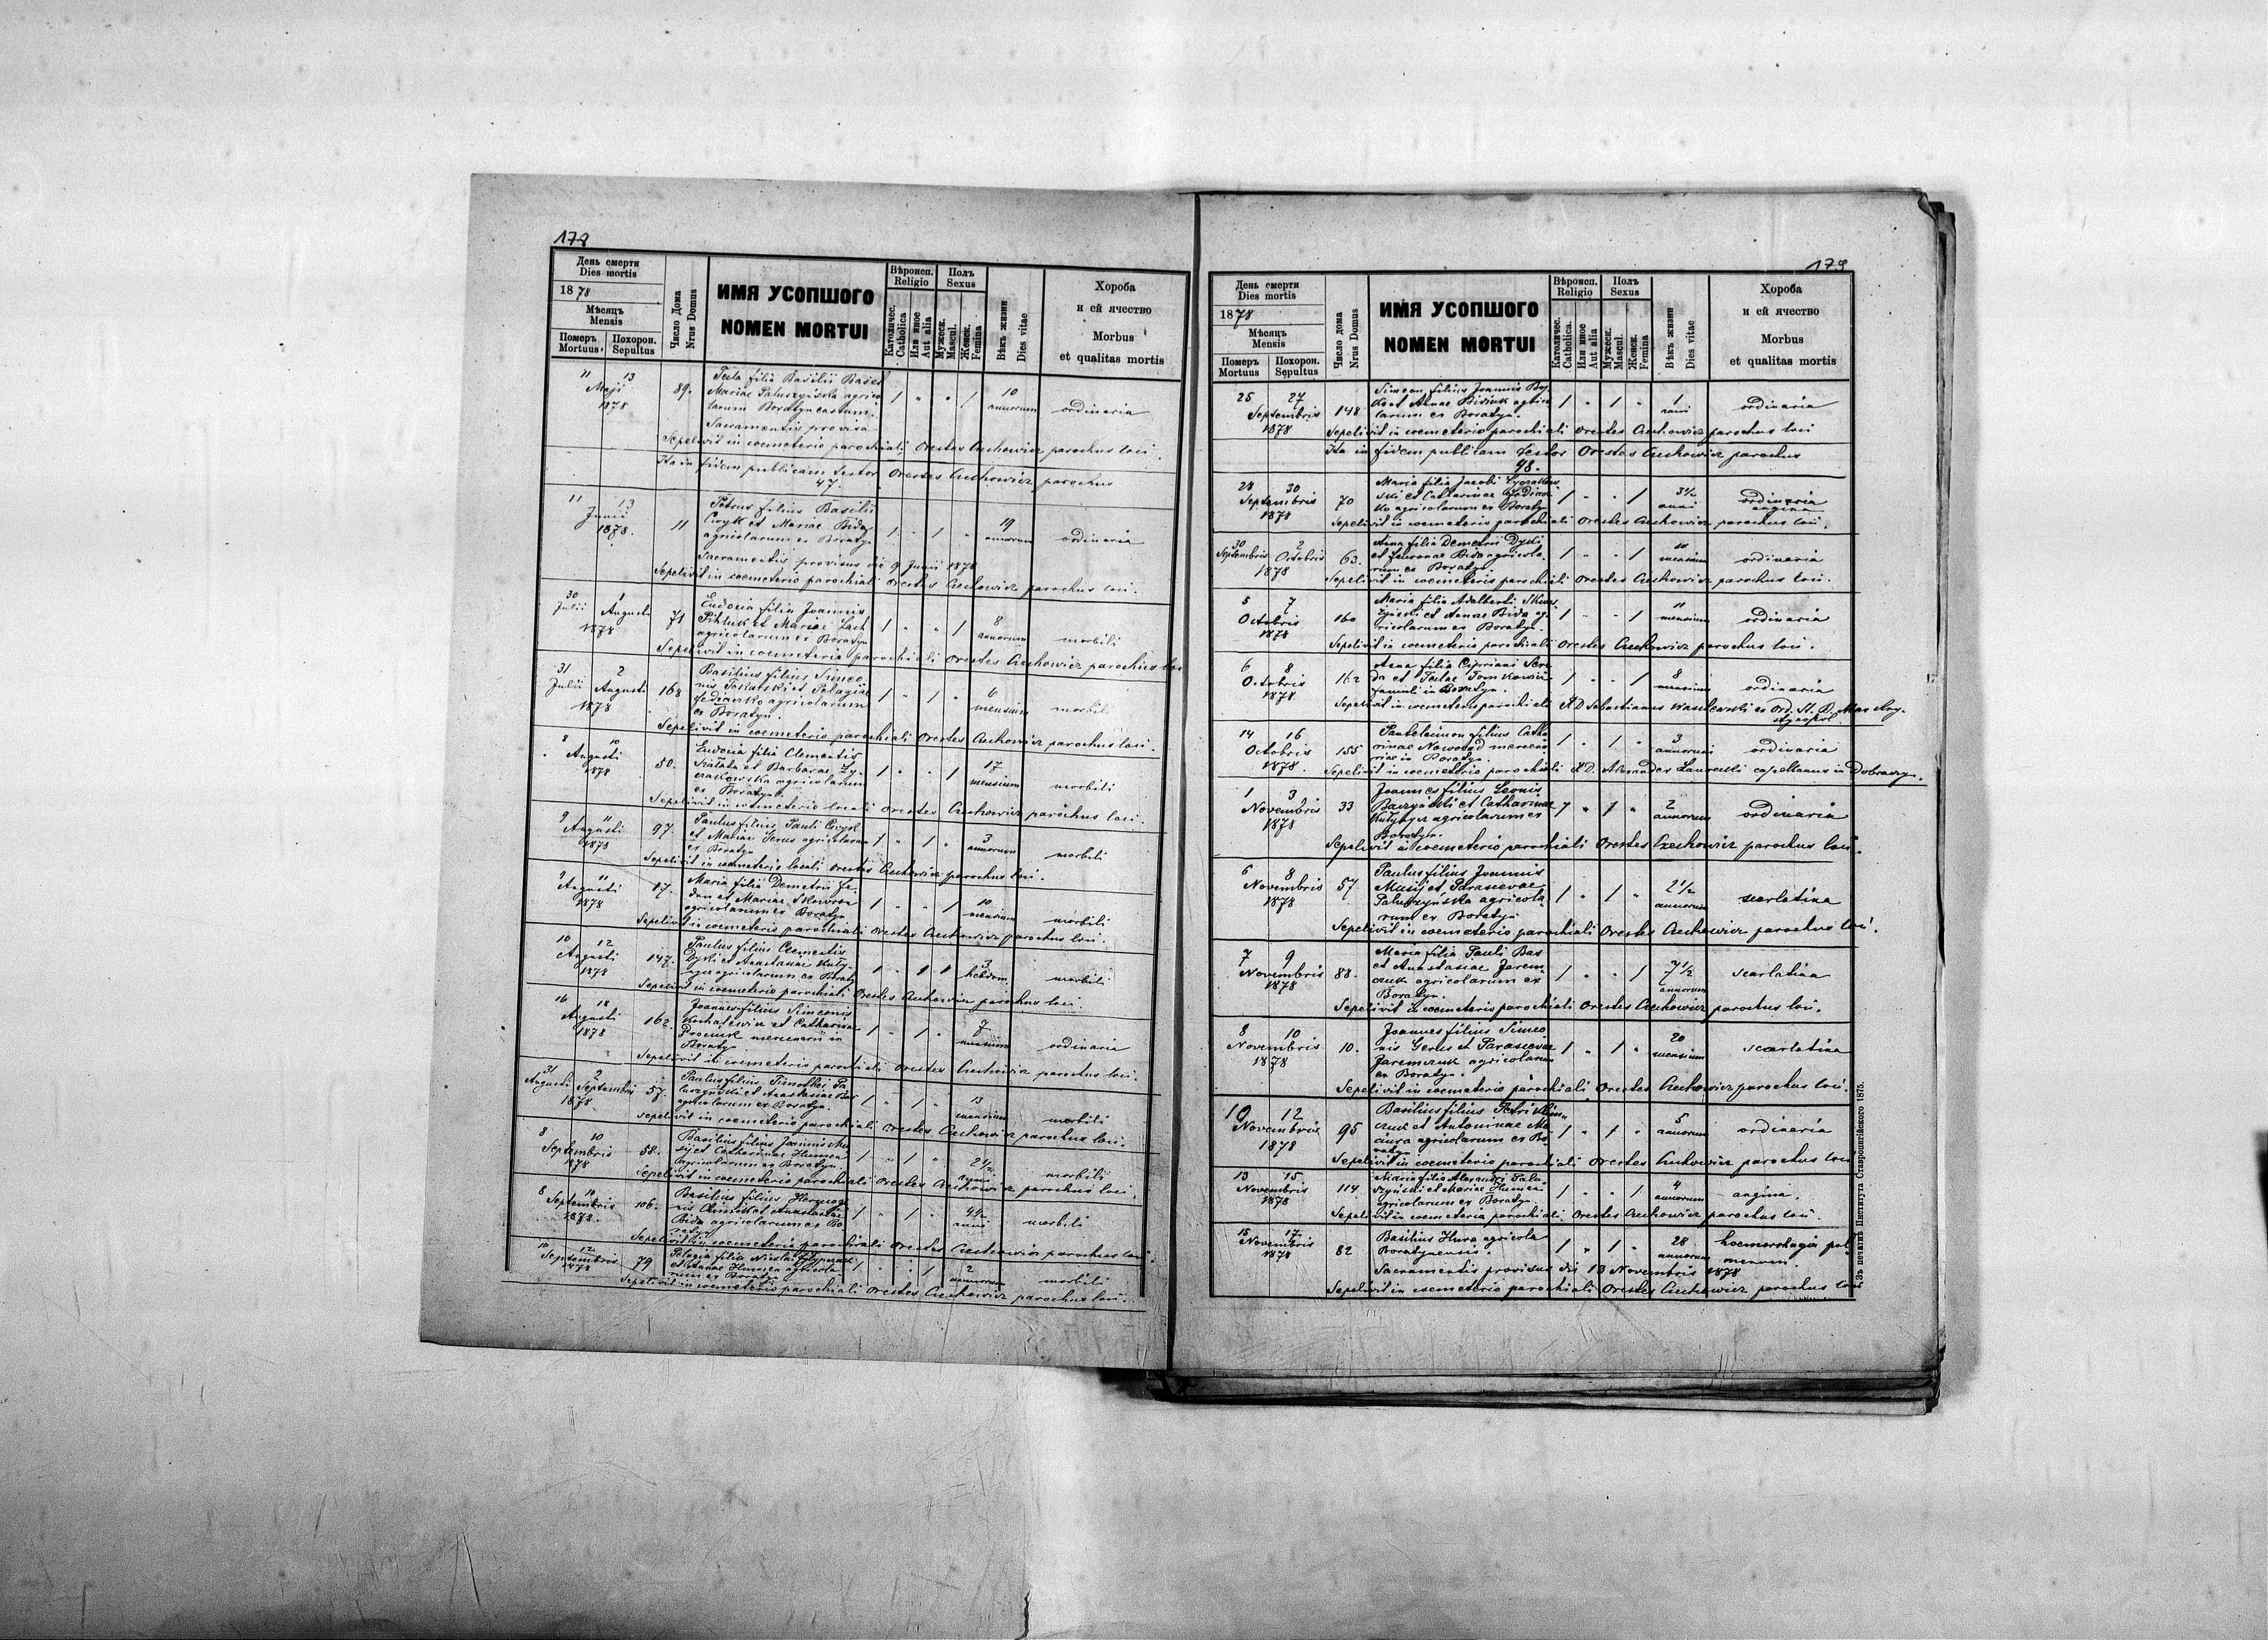 178
День смерти
Dies mortis
1878
Мѣсяцъ
Mensis
Померъ
Mortuus
Похорон.
Sepultus
Число Дома
Nrus Domus
ИМЯ УСОПШОГО
NOMEN MORTUI
Вѣроисп.
Religio
Католичес.
Catholica
Или иное
Aut alia
Полъ
Sexus
Мужеск.
Mascul.
Женск.
Femina
Вѣкъ жизни
Dies vitae
Хороба
и ей ячество
Morbus
et qualitas mortis
11 13
Maji
1878
89.
Tecla filia Basilii Bas et
Mariae Paluszyńska agrico
larum Boratyncastum.
Sacramentis provisa
10
annorum
ordinaria
Sepelivit in coemeterio parochiali Orestes Czechowicz parochus loci.
Ita in fidem publicam testor Orestes Czechowicz parochus
47.
11 13
Junii
1878.
11
Petrus filius Basilii
Cwyk et Mariae Bida
agricolarum ex Boratyn
19
annorum
ordinaria
Sacramentis provisus die 9 Junii 1878
Sepelivit in coemeterio parochiali Orestes Czechowicz parochus loci.
30 1
Julii Augusti
1878
71
Eudocia filia Joannis
et Mariae
agricolarum ex Boratyn
8
annorum
morbili
Sepelivit in coemeterio parochiali Orestes Czechowicz parochus loci
31 2
Julii Augusti
1878
168
Basilius filius Simeo
nis et Pelagiae
agricolarum
ex Boratyn.
6
mensium
morbili
Sepelivit in coemeterio parochiali Orestes Czechowicz parochus loci.
8 10
Augusti
1878
50.
Eudocia filia Clementis
et Barbarae Ły
czakowska agricolarum
ex Boratyn.
17
mensium
morbili
Sepelivit in coemeterio locali Orestes Czechowicz parochus loci.
9 11
Augusti
1878
97.
Paulus filius Pauli Cwyk
et Mariae agricolarum
ex Boratyn
3
annorum
morbili
Sepelivit in coemeterio locali Orestes Czechowicz parochus loci.
9 11
Augusti
1878
17.
Maria filia Demetrii
et Mariae Skowron
agricolarum ex Boratyn
10
mensium
morbili
Sepelivit in coemeterio parochiali Orestes Czechowicz parochus loci.
10 12
Augusti
1878
147.
Paulus filius Clementis
Dycki et Anastasiae
agricolarum ex Boraty
3
hebdom.
morbili
Sepelivit in coemeterio parochiali Orestes Czechowicz parochus loci.
16 18
Augusti
1878
162.
Joannes filius Simeonis
et Catharinae
mercenarii in
Boratyn
7
mensium
ordinaria
Sepelivit in coemeterio parochiali Orestes Czechowicz parochus loci.
31 2
Augusti Septembris
1878
57.
Paulus filius Timothei Pa
luszyński et Anastasiae Bas
agricolarum ex Boratyn.
13
mensium
morbili
Sepelivit in coemeterio parochiali Orestes Czechowicz parochus loci.
8 10
Septembris
1878
58.
Basilius filius Joannis Mu
sij et Catharinae Humen
agricolarum ex Boratyn
2 1/2
anni
morbili
Sepelivit in coemeterio parochiali Orestes Czechowicz parochus loci.
8 10
Septembris
1878.
106.
Basilius filius
et Anastasiae
Bida agricolarum ex Bo
ratyn
4 1/2
anni
morbili
Sepelivit in coemeterio parochiali Orestes Czechowicz parochus loci.
10 12
Septembris
1878
79
Pelagia filia Nicolai
et Annae Humen agricola
rum ex Boratyn
2
annorum
morbili
Sepelivit in coemeterio parochiali Orestes Czechowicz parochus loci.
179
День смерти
Dies mortis
1878
Мѣсяцъ
Mensis
Померъ
Mortuus
Похорон.
Sepultus
Число дома
Nrus Domus
ИМЯ УСОПШОГО
NOMEN MORTUI
Вѣроисп.
Religio
Католичес.
Catholica.
Или иное
Aut alia
Полъ
Sexus
Мужеск.
Mascul.
Женск.
Femina
Вѣкъ жизни
Dies vitae
Хороба
и ей ячество
Morbus
et qualitas mortis
25 27
Septembris
1878
148
Simeon filius Joannis
et Annae agrico
larum ex Boratyn.
1
anni
ordinaria
Sepelivit in coemeterio parochiali Orestes Czechowicz parochus loci
Ita in fidem publicam testor Orestes Czechowicz parochus
48.
28 30
Septembris
1878
70
Maria filia Jacobi Łyczakow
ski et Catharinae
agricolarum ex Boratyn
3 1/2
anni
ordinaria
angina
Sepelivit in coemeterio parochiali Orestes Czechowicz parochus loci.
30 2
Septembris Octobris
1878
63.
Anna filia Demetrii Dycki
et Bida agricola
rum ex Boratyn.
10
mensium
ordinaria
Sepelivit in coemeterio parochiali Orestes Czechowicz parochus loci.
5 7
Octobris
1878
160
Maria filia Adalberti
et Annae Bida ag
ricolarum ex Boratyn.
11
mensium
ordinaria
Sepelivit in coemeterio parochiali Orestes Czechowicz parochus loci.
6 8
Octobris
1878
162
Anna filia Cipriani
et Teclae Tomkowicz
famuli in Boratyn.
8
mensium
ordinaria
Sepelivit in coemeterio parochiali A D Sebastianus Wasilewski ex Ord. St. B.
14 16
Octobris
1878.
155
Panteleimon filius Catha
rinae Naworod mercena
riae in Boratyn.
3
annorum
ordinaria
Sepelivit in coemeterio parochiali A D. Alexander capellanus in Dobraczyn.
1 3
Novembris
1878
33
Joannes filius Leonis
Baczyński et Catharinae
agricolarum ex
Boratyn.
2
annorum
ordinaria
Sepelivit in coemeterio parochiali Orestes Czechowicz parochus loci.
6 8
Novembris
1878
57
Paulus filius Joannis
Musij et Parascevae
Paluszyńska agricola
rum ex Boratyn
2 1/2
annorum
scarlatina
Sepelivit in coemeterio parochiali Orestes Czechowicz parochus loci.
7 9
Novembris
1878
88.
Maria filia Pauli Bas
et Anastasiae Jarem
czuk agricolarum ex
Boratyn.
7 1/2
annorum
scarlatina
Sepelivit in coemeterio parochiali Orestes Czechowicz parochus loci.
8 10
Novembris
1878
10.
Joannes filius Simeo
nis Gerus et Parascevae
Jaremczuk agricolarum
ex Boratyn.
20
mensium
scarlatina
Sepelivit in coemeterio parochiali Orestes Czechowicz parochus loci.
10 12
Novembris
1878
95
Basilius filius Petri Klim
czuk et Antoninae Ma
zura agricolarum ex Bo
ratyn
5
annorum
ordinaria
Sepelivit in coemeterio parochiali Orestes Czechowicz parochus loci
13 15
Novembris
1878
114
Maria filia Alexandri Palu
szyński et Mariae Humen
agricolarum ex Boratyn.
4
annorum
angina.
Sepelivit in coemeterio parochiali Orestes Czechowicz parochus loci.
15 17
Novembris
1878
82
Basilius Hura agricola
Boratynensis.
28
annorum
hoemorrhagia pul
monum.
Sacramentis provisus die 13 Novembris 1878
Sepelivit in coemeterio parochiali Orestes Czechowicz parochus loci.
Зъ печатнѣ Института Ставропигійского 1875.